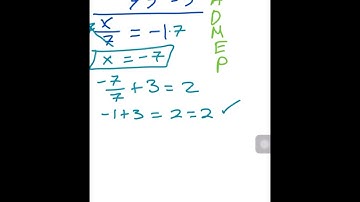 x/7 = -1.7
x = -7
-7/7 + 3 = 2
-1+3 = 2 = 2 ✓
D
M
E
P